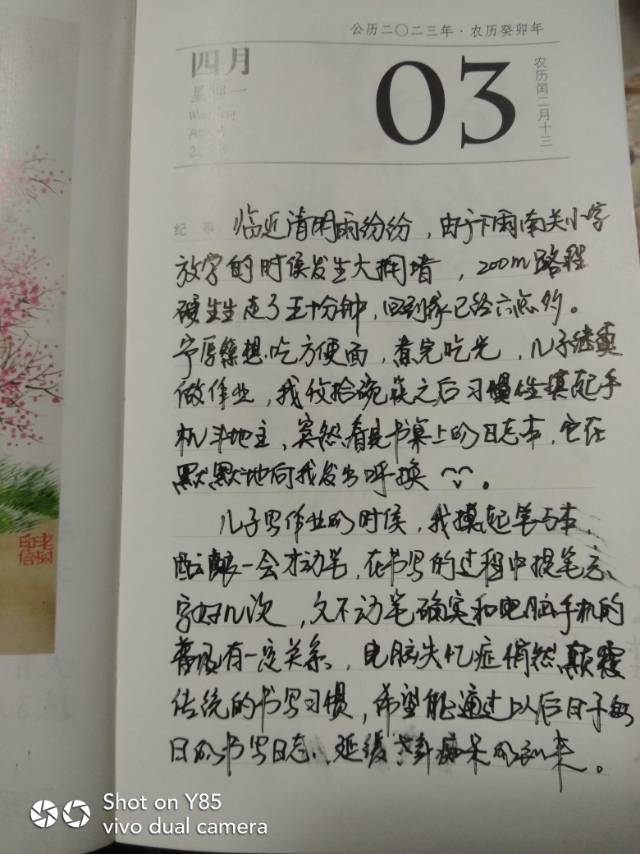 公历二〇二三年·农历癸卯年
四月
星期一
03
农历闰二月十三
纪事
临近清明雨纷纷，由于下雨南关小学
放学的时候发生大拥堵，200m路程
硬生生走了五十分钟，回到家已经六点多。
宁厚德想吃方便面，煮完吃光，儿子继续
做作业，我收拾碗筷之后习惯性摸起手
机斗地主，突然看见书桌上的日志本，它在
默默地向我发出呼唤
儿子写作业的时候，我摸起笔与本，
酝酿一会才动笔，在书写的过程中提笔忘
字好几次，久不动笔确实和电脑手机的
普及有一定关系，电脑失忆症悄然颠覆
传统的书写习惯，希望能通过以后日子每
日的书写日志，延缓 的到来。
Shot on Y85
vivo dual camera